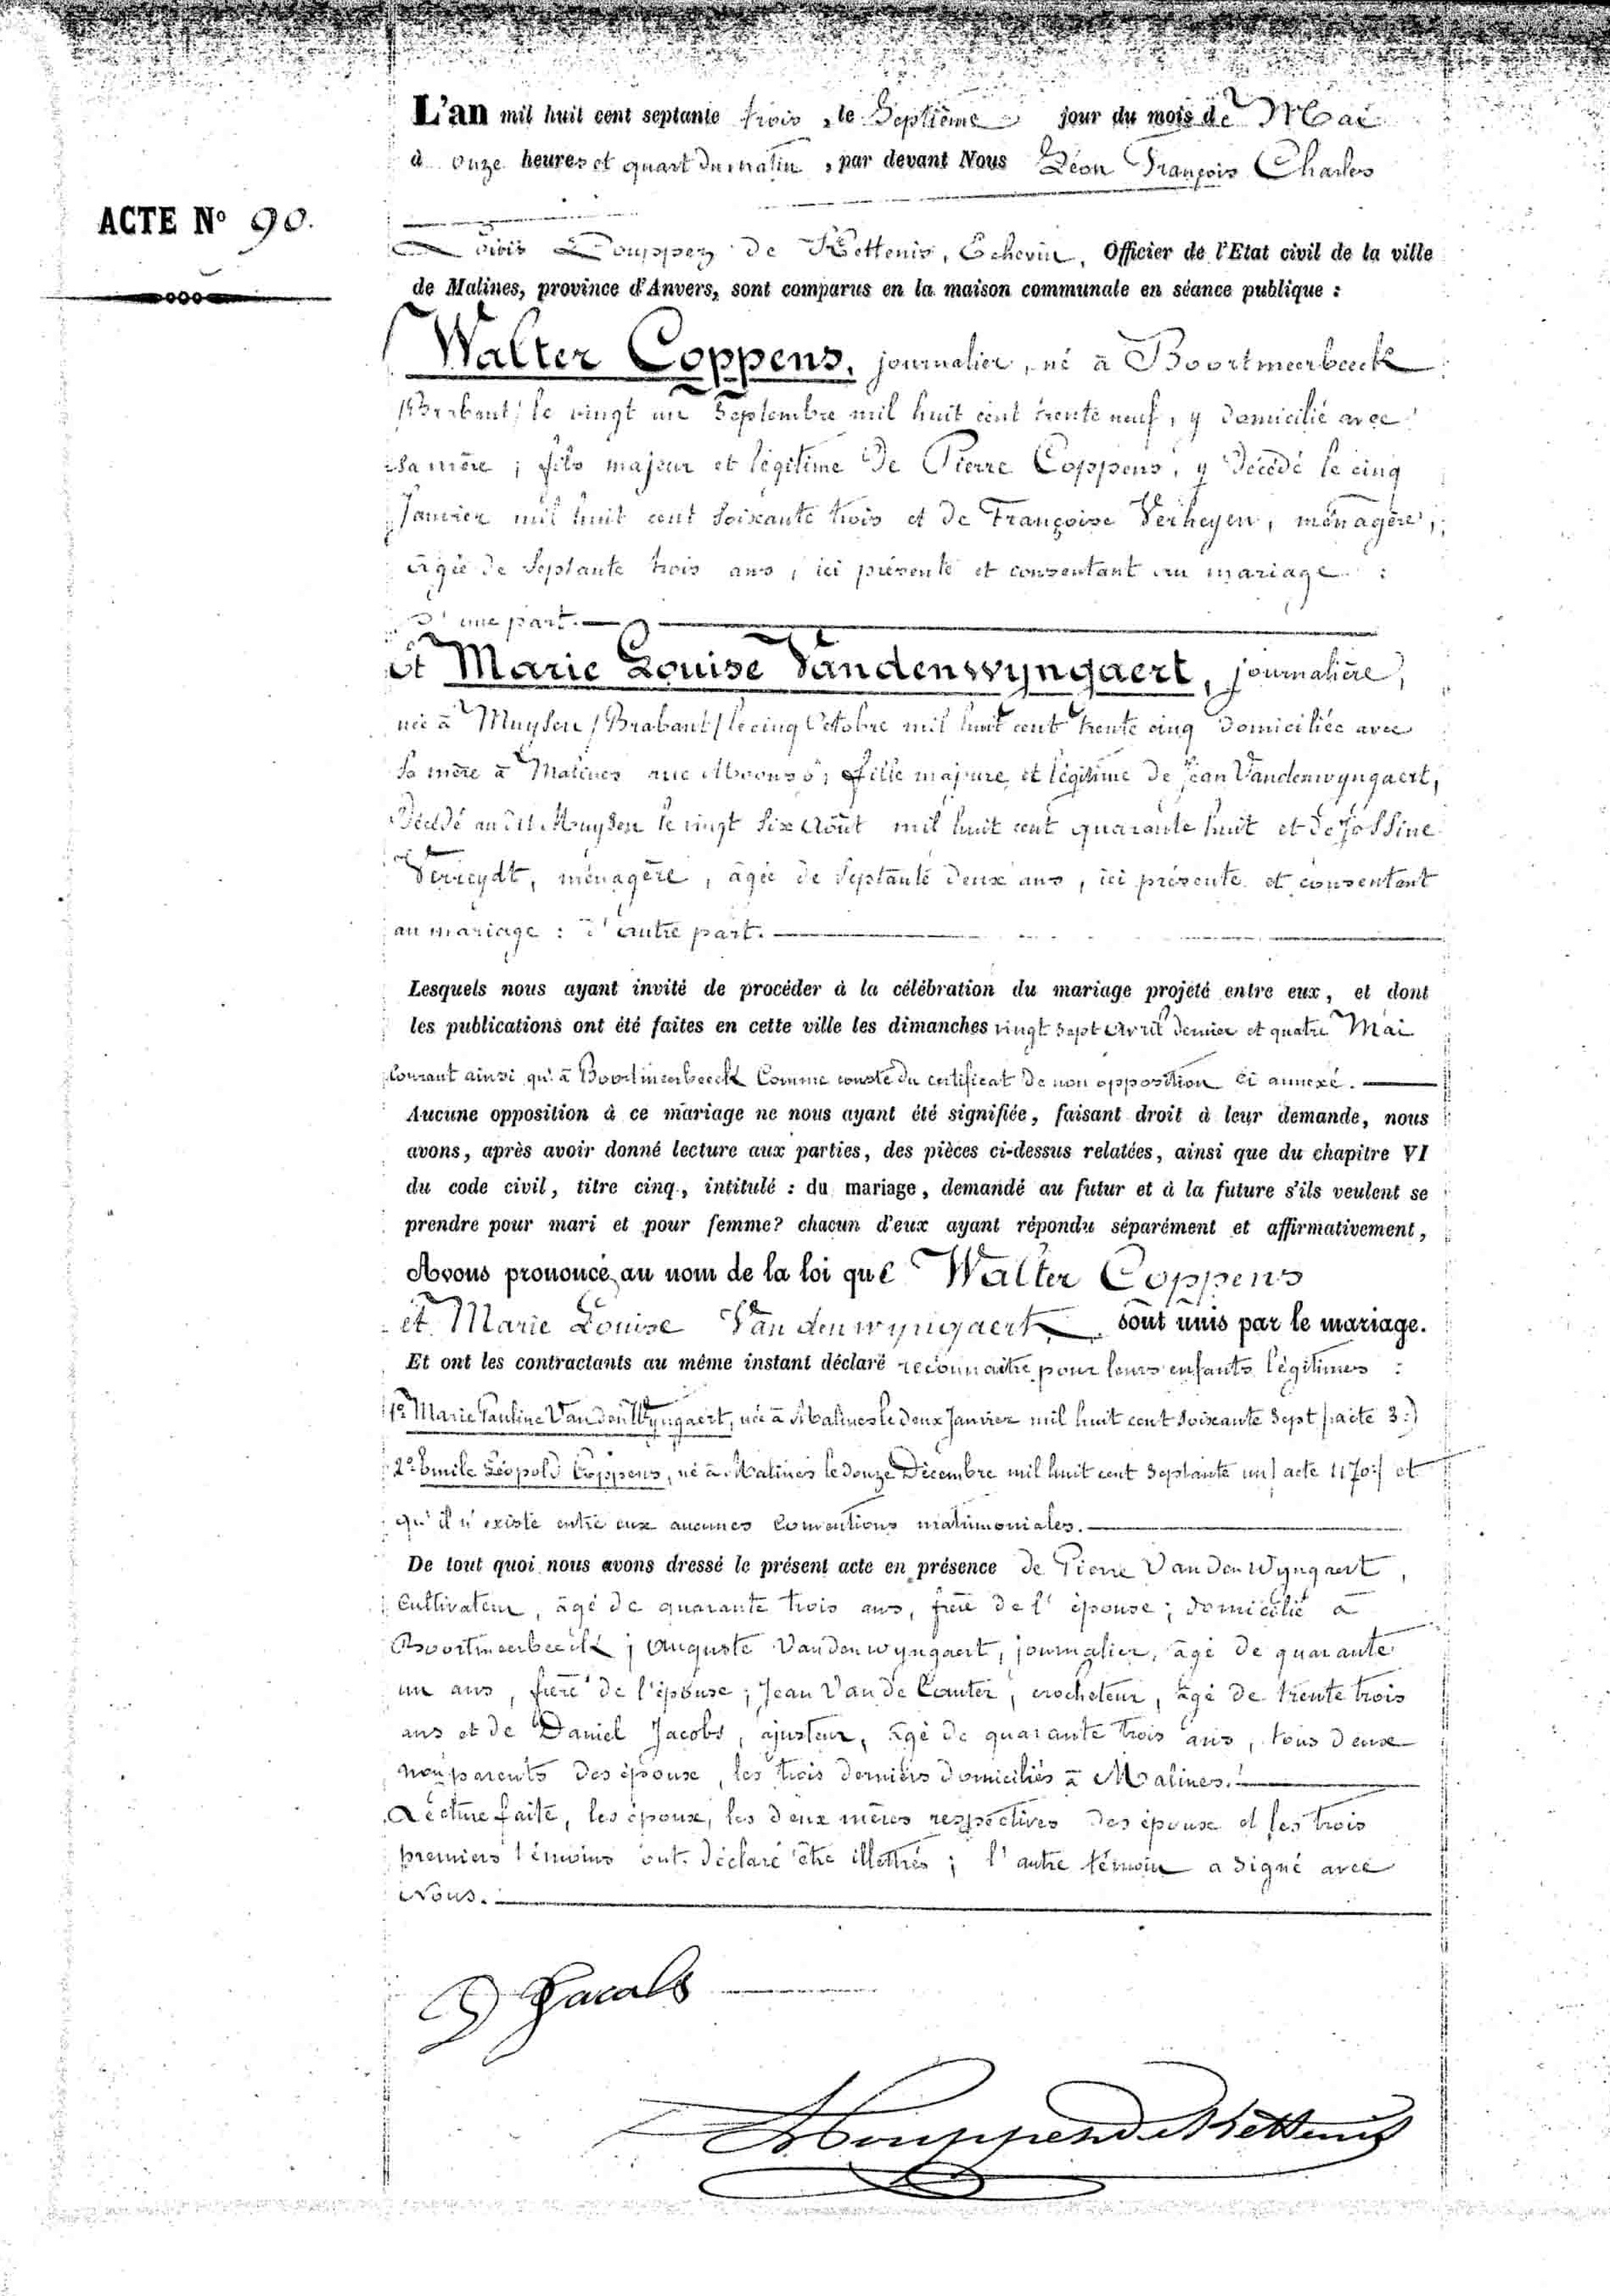 L'an mil huit cent septante trois, le Septième jour du mois de Mai
à onze heures et quart du matin, par devant Nous Léon François Charles
ACTE Nº 90.
Louis Pouppez de Kettenis, Echevin, Officier de l'Etat civil de la ville
de Malines, province d'Anvers, sont comparus en la maison communale en séance publique :
Walter Coppens, journalier, né à Boortmeerbeeck
/Brabant/ le vingt un Septembre mil huit cent trente neuf, y domicilié avec
sa mère ; fils majeur et légitime de Pierre Coppens, y décédé le cinq
Janvier mil huit cent soixante trois et de Françoise Verheyen, ménagère,
âgée de septante trois ans, ici présente et consentant au mariage :
d'une part.
et Marie Louise Vandenwyngaert, journalière,
née à Muysen /Brabant/ le cinq Octobre mil huit cent trente cinq domiciliée avec
sa mère à Malines rue ; fille majeure et légitime de Jean Vandenwyngaert,
décédé au dit Muysen le vingt six Août mil huit cent quarante huit et de Jossine
Verreydt, ménagère, âgée de septante deux ans, ici présente et consentant
au mariage : d'autre part.
Lesquels nous ayant invité de procéder à la célébration du mariage projété entre eux, et dont
les publications ont été faites en cette ville les dimanches vingt sept Avril dernier et quatre Mai
courant ainsi qu'à Boortmeerbeeck comme conste du certificat de non opposition ci annexé.
Aucune opposition à ce mariage ne nous ayant été signifiée, faisant droit à leur demande, nous
avons, après avoir donné lecture aux parties, des pièces ci-dessus relatées, ainsi que du chapitre VI
du code civil, titre cinq, intitulé : du mariage, demandé au futur et à la future s'ils veulent se
prendre pour mari et pour femme? chacun d'eux ayant répondu séparément et affirmativement,
Avons prononcé au nom de la loi que Walter Coppens
et Marie Louise Vandenwyngaert sont unis par le mariage.
Et ont les contractants au même instant déclaré reconnaitre pour leurs enfants légitimes :
1º Marie Pauline Vanden Wyngaert, née à Malines le deux Janvier mil huit cent soixante sept /acte 3:/
2º Emile Léopold Coppens, né à Malines le douze Décembre mil huit cent septante un / acte 1170:/ et
qu'il n'existe entre eux aucunes conventions matrimoniales.
De tout quoi nous avons dressé le présent acte en présence de Pierre Vanden Wyngaert,
cultivateur, âgé de quarante trois ans, frère de l'épouse ; domicilié à
Boortmeerbeeck ; Auguste Vandenwyngaert, journalier, âgé de quarante
un ans, frère de l'épouse ; Jean Van de Cauter, crocheteur, âgé de trente trois
ans et de Daniel Jacobs, ajusteur, âgé de quarante trois ans, tous deux
non parents des époux, les trois derniers domiciliés à Malines.
Lecture faite, les époux, les deux mères respectives des époux et les trois
premiers témoins ont déclaré être illettrés ; l'autre témoin a signé avec
Nous.
D Jacobs
LPouppez de Kettenis